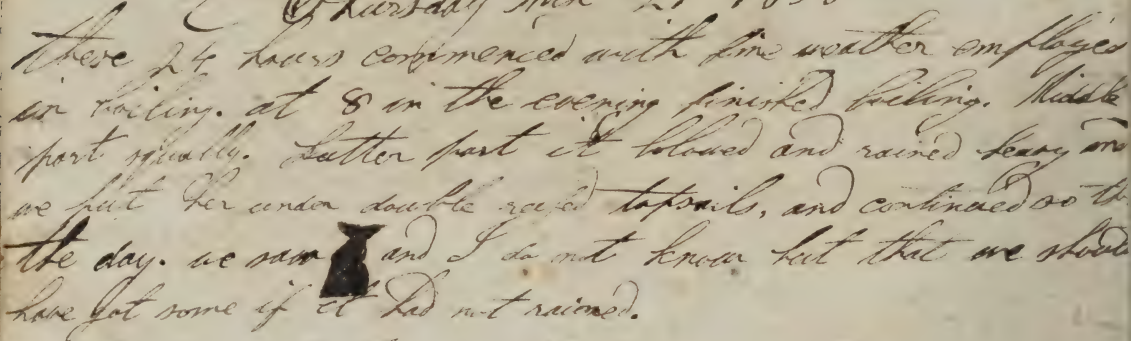 Thursday
these 24 hours commenced with fine weather employed
in boiling. at 8 in the evening finished boiling. Middle
part squally. Latter part it blowed and rained heavy and
we put her under double reefed topsails, and continued so
the day. we saw and I do not know but that we should
have got some if it had not rained.